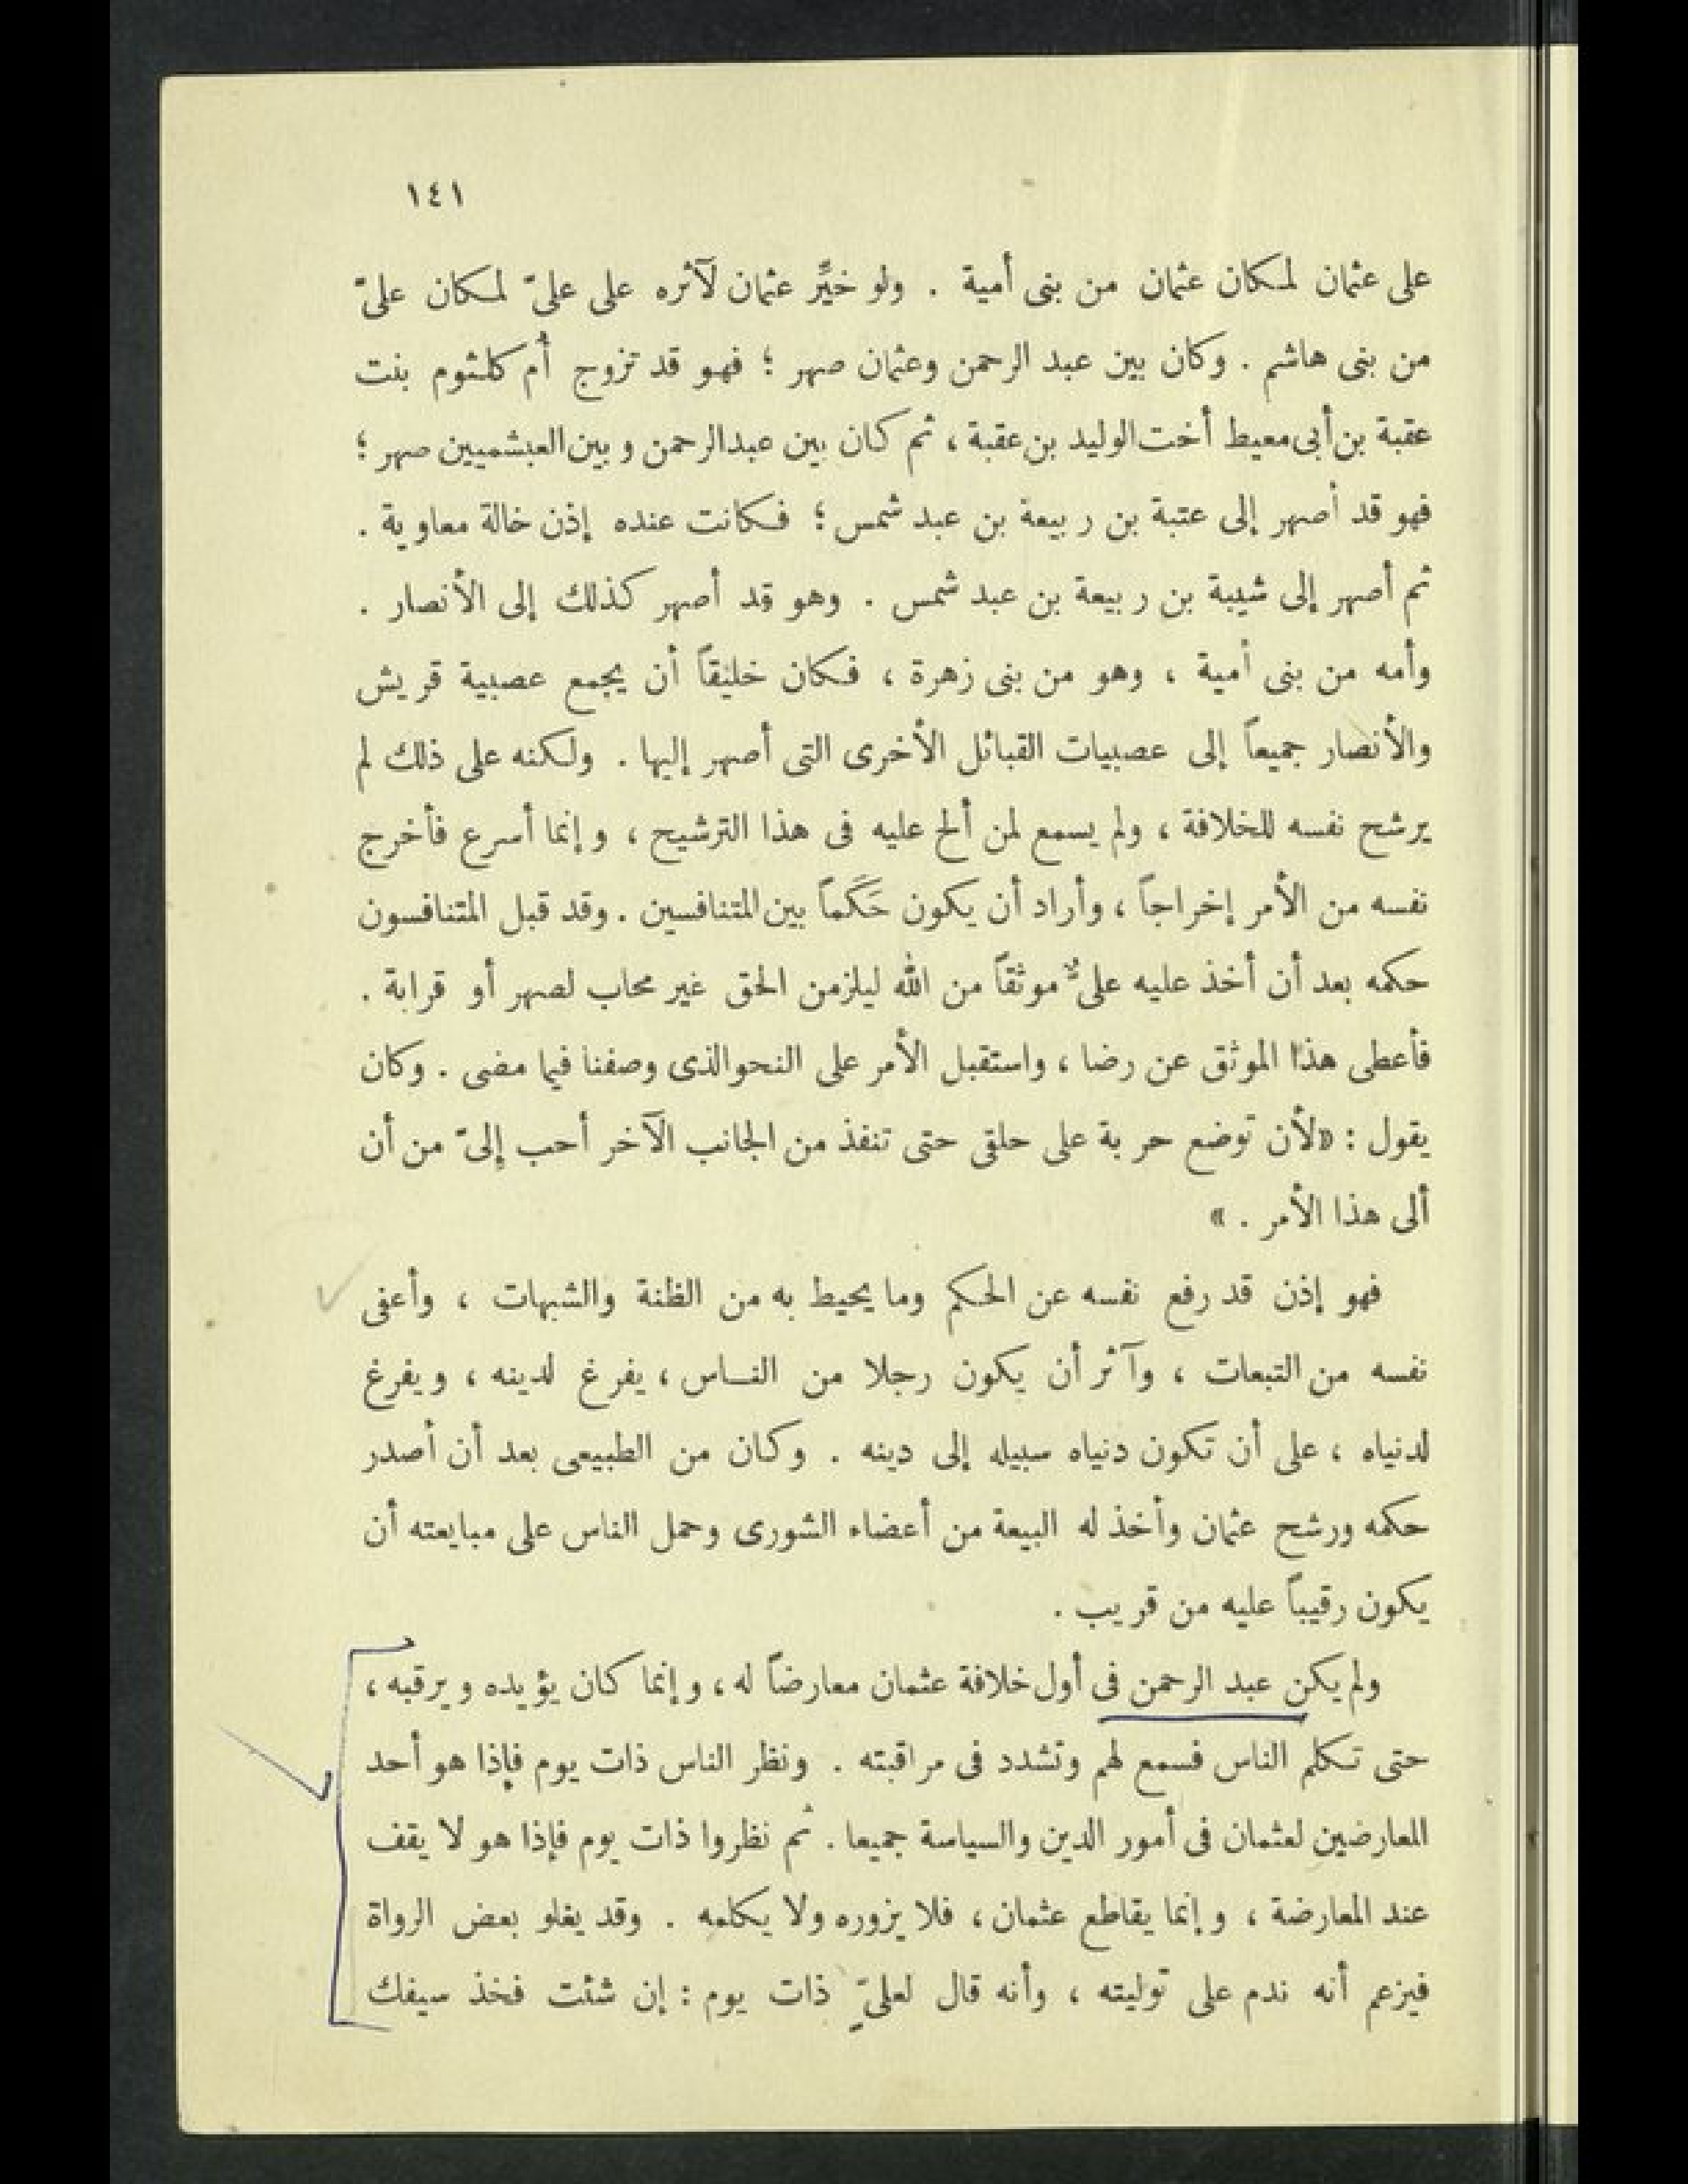 ١٤١
على عثمان لمكان عثمان من بنى أمية . ولو خيِّر عثمان لآثره على علىّ لمكان علىّ
من بنى هاشم . وكان بين عبد الرحمن وعثمان صهر ؛ فهو قد تزوج أم كلثوم بنت
عقبة بن أبى معيط أخت الوليد بن عقبة ، ثم كان بين عبد الرحمن وبين العبشميين صهر ؛
فهو قد أصهر إلى عتبة بن ربيعة بن عبد شمس ؛ فكانت عنده إذن خالة معاوية .
ثم أصهر إلى شيبة بن ربيعة بن عبد شمس . وهو قد أصهر كذلك إلى الأنصار .
وأمه من بنى أمية ، وهو من بنى زهرة ، فكان خليقاً أن يجمع عصبية قريش
والأنصار جميعاً إلى عصبيات القبائل الأخرى التى أصهر إليها . ولكنه على ذلك لم
يرشح نفسه للخلافة ، ولم يسمع لمن ألح عليه فى هذا الترشيح ، وإنما أسرع فأخرج
نفسه من الأمر إخراجاً ، وأراد أن يكون حَكَماً بين المتنافسين . وقد قبل المتنافسون
حكمه بعد أن أخذ عليه علىٌّ موثقاً من الله ليلزمن الحق غير محاب لصهر أو قرابة .
فأعطى هذا الموثق عن رضا ، واستقبل الأمر على النحو الذى وصفنا فيما مضى . وكان
يقول : «لأن توضع حربة على حلقى حتى تنفذ من الجانب الآخر أحب إلىّ من أن
ألى هذا الأمر . »
فهو إذن قد رفع نفسه عن الحكم وما يحيط به من الظنة والشبهات ، وأعفى
نفسه من التبعات ، وآثر أن يكون رجلا من الناس ، يفرغ لدينه ، ويفرغ
لدنياه ، على أن تكون دنياه سبيله إلى دينه . وكان من الطبيعى بعد أن أصدر
حكمه ورشح عثمان وأخذ له البيعة من أعضاء الشورى وحمل الناس على مبايعته أن
يكون رقيباً عليه من قريب .
ولم يكن عبد الرحمن فى أول خلافة عثمان معارضاً له ، وإنما كان يؤيده ويرقبه ،
حتى تكلم الناس فسمع لهم وتشدد فى مراقبته . ونظر الناس ذات يوم فإذا هو أحد
المعارضين لعثمان فى أمور الدين والسياسة جميعا . ثم نظروا ذات يوم فإذا هو لا يقف
عند المعارضة ، وإنما يقاطع عثمان ، فلا يزوره ولا يكلمه . وقد يغلو بعض الرواة
فيزعم أنه ندم على توليته ، وأنه قال لعلىٍّ ذات يوم : إن شئت فخذ سيفك